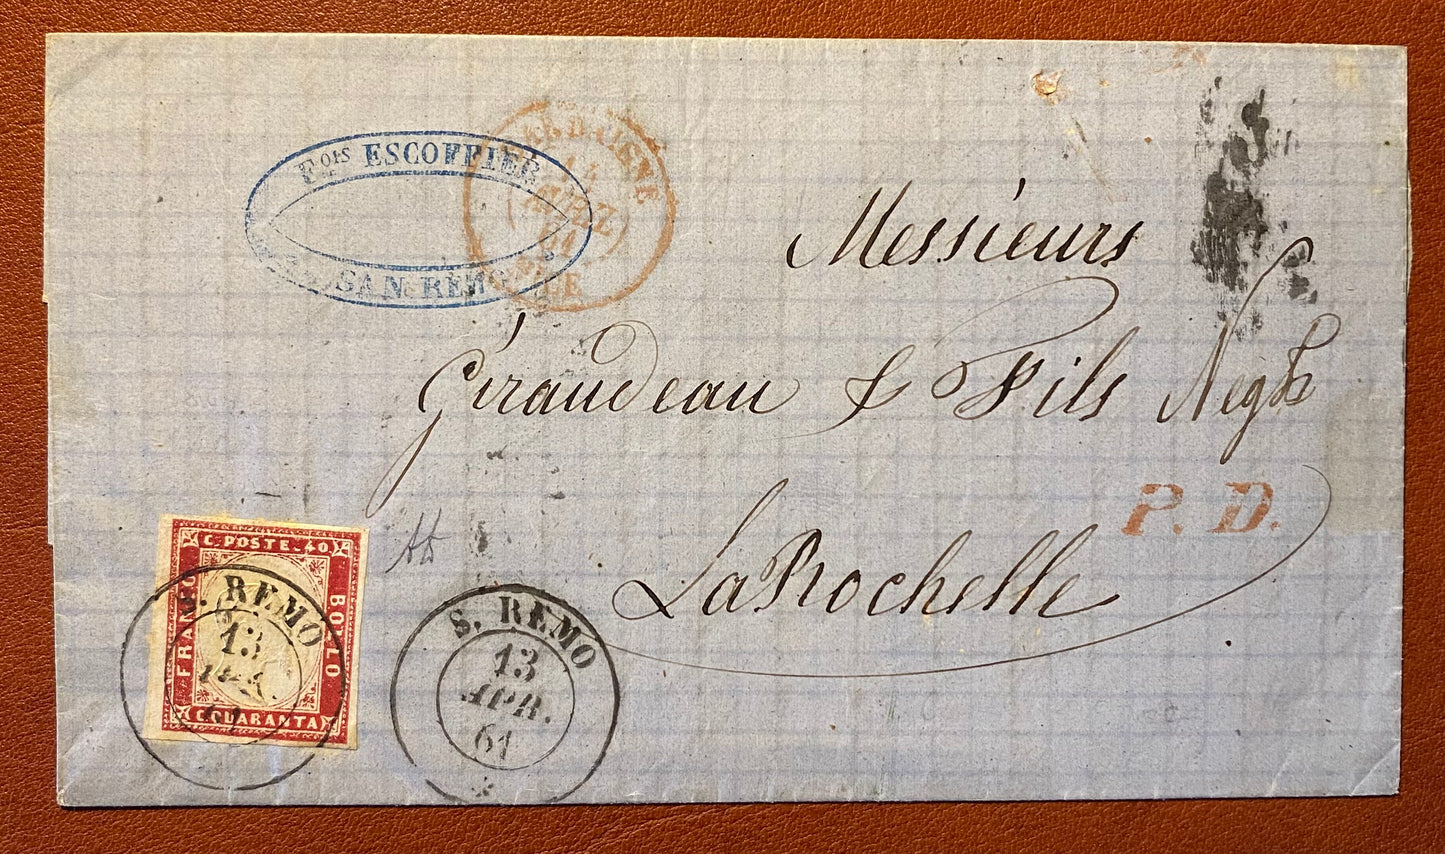 Fois ESCOFFIER
SAN REMO
SARDAIGNE
14
AVRIL
61
Messieurs
Giraudeau & Fils Negts
La Rochelle
P. D.
C. POSTE. 40
FRANCO
BOLLO
C. QUARANTA
S. REMO
13
APR.
61
S. REMO
13
APR.
61